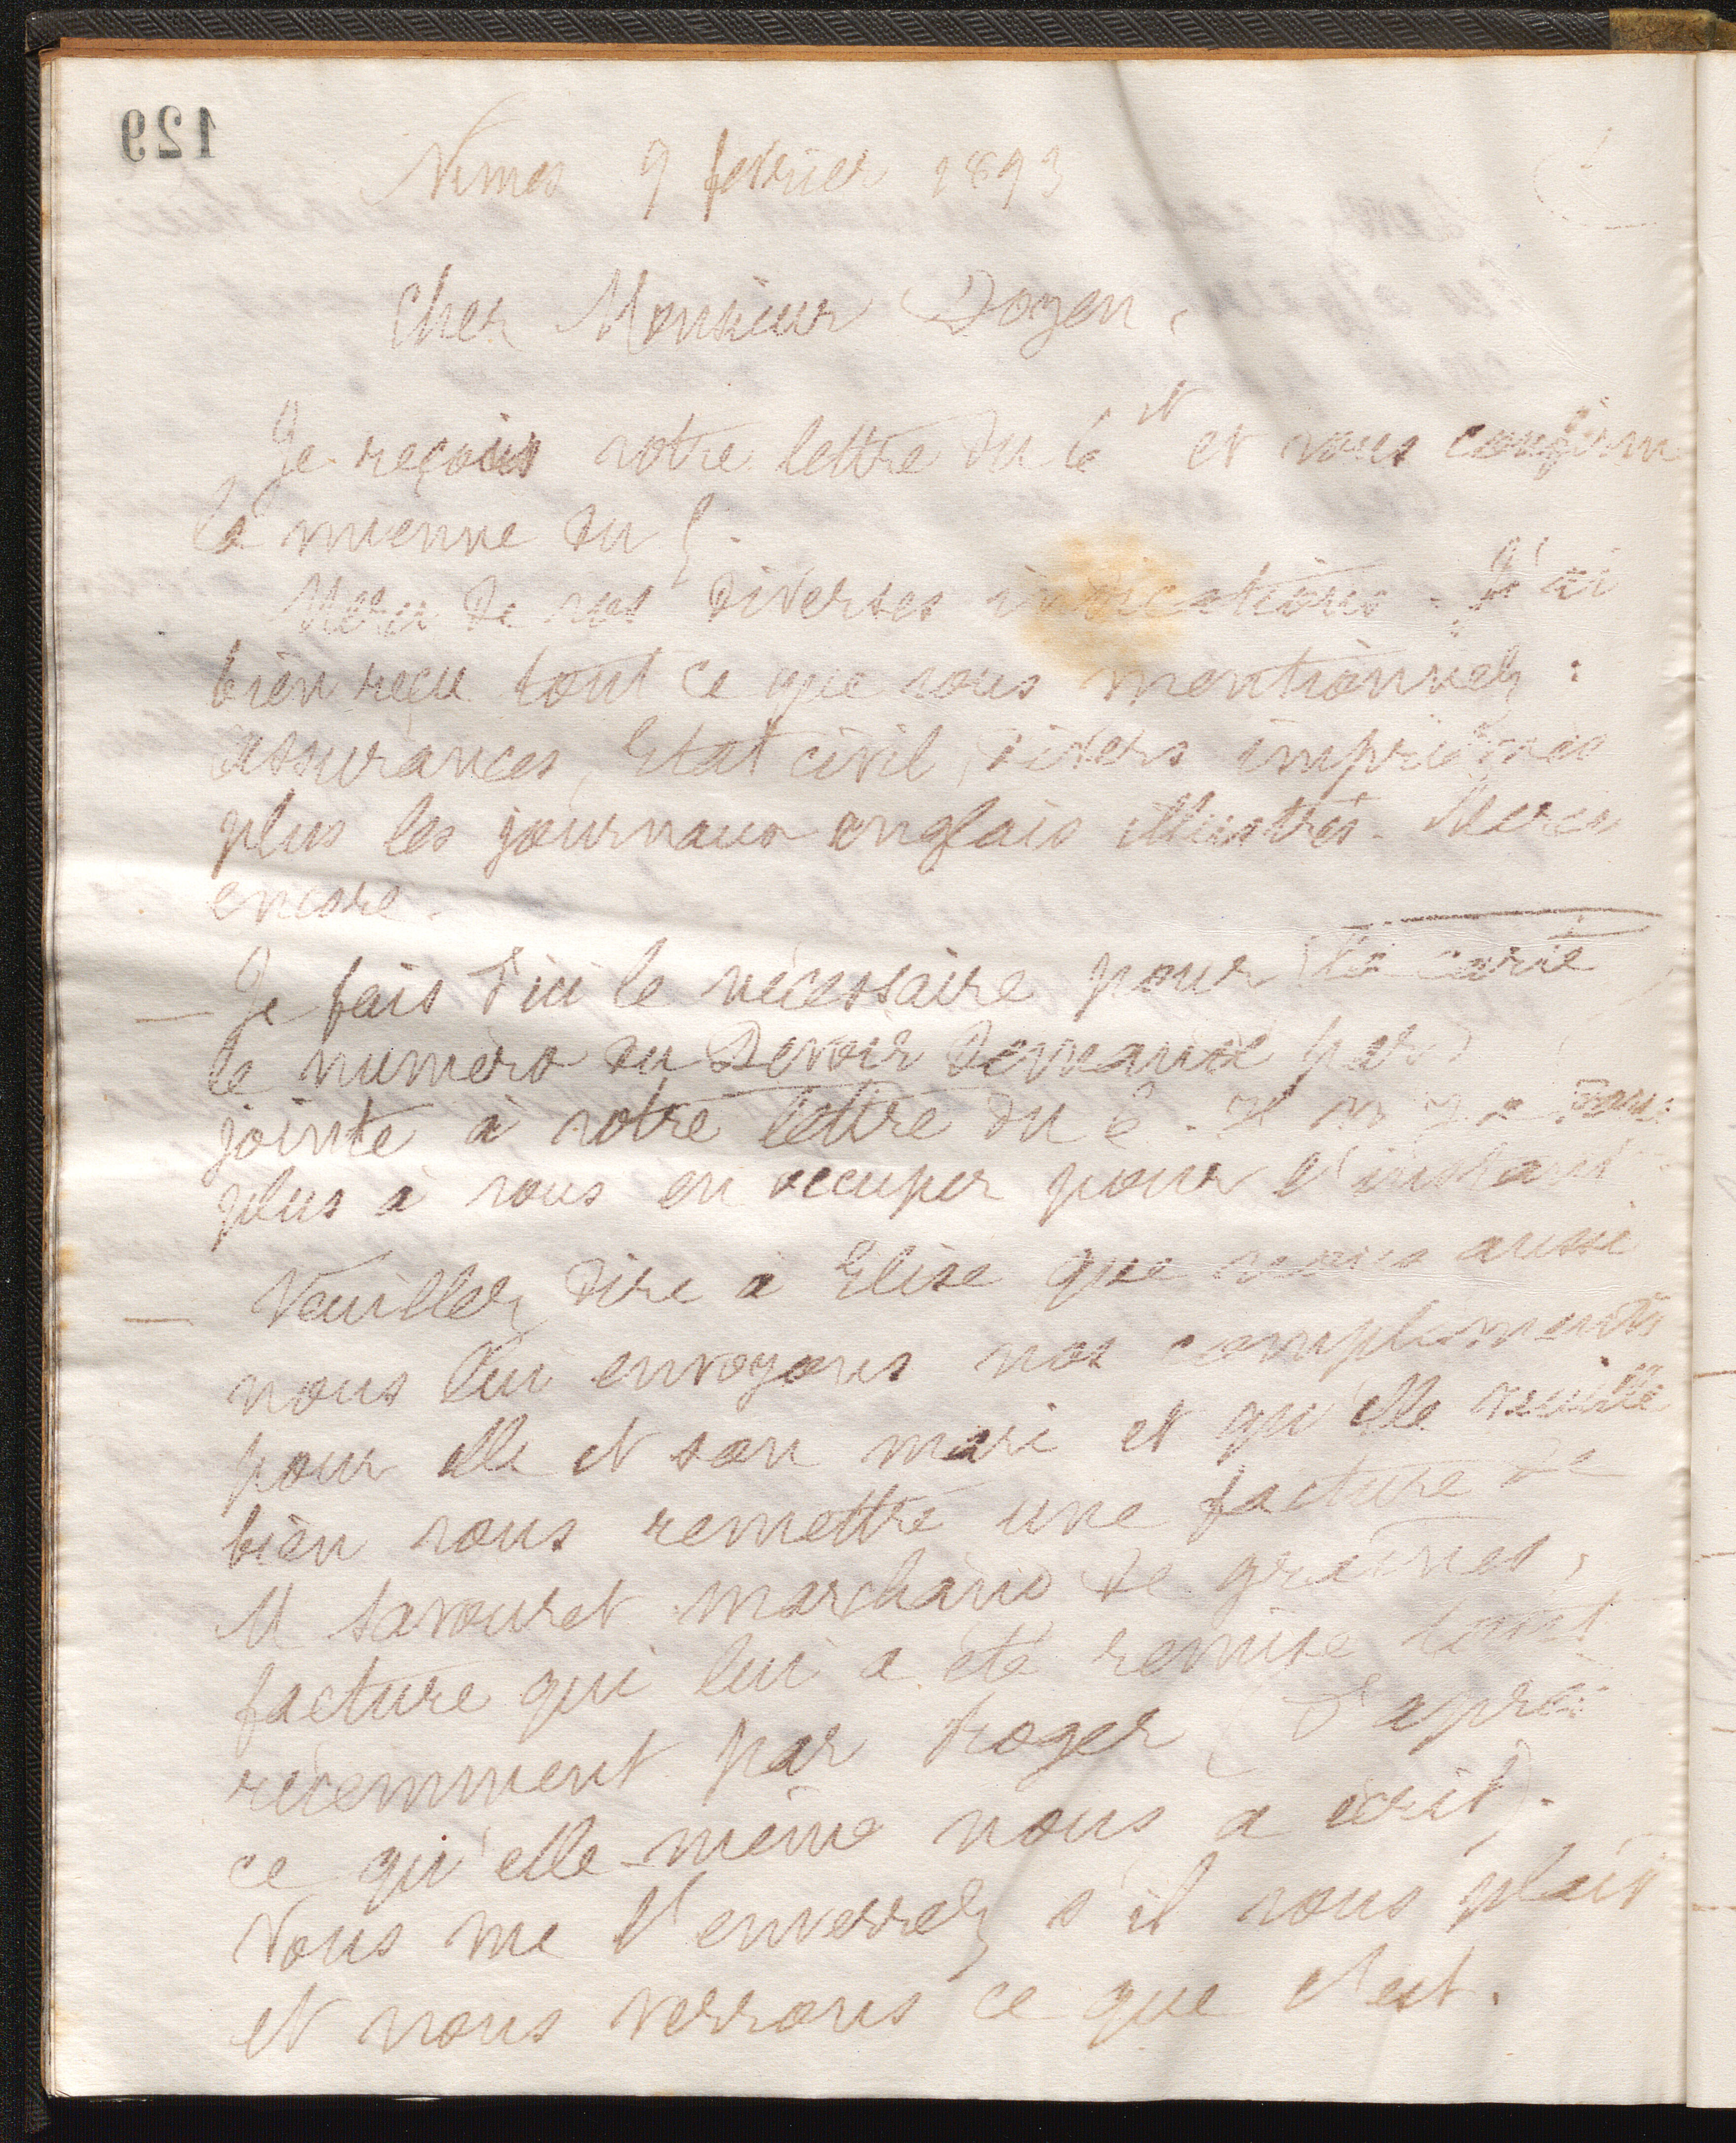 129
Nimes 9 février 1893
Cher Monsieur Doyen,
Je reçois votre lettre du 6 et et vous confirme
la mienne du 5.
Merci de vos diverses indications. J'ai
bien reçu tout ce que vous mentionnez :
assurances, Etat civil, divers imprimés
plus les journaux anglais illustrés. Merci
encore.
— Je fais d'ici le nécessaire pour
le numéro du Devoir demandé par la carte
jointe à votre lettre du 6. Il n'y a donc
plus à vous en occuper pour l'instant.
— Veuillez dire à Elise que nous aussi
nous lui envoyons nos compliments
pour elle et son mari et qu'elle veuille
bien vous remettre une facture de
M Savouret marchand de graines,
facture qui lui a été remise tout
récemment par Roger (d'après
ce qu'elle-même nous a écrit).
Vous me l'enverrez s'il vous plait
et nous verrons ce que c'est.